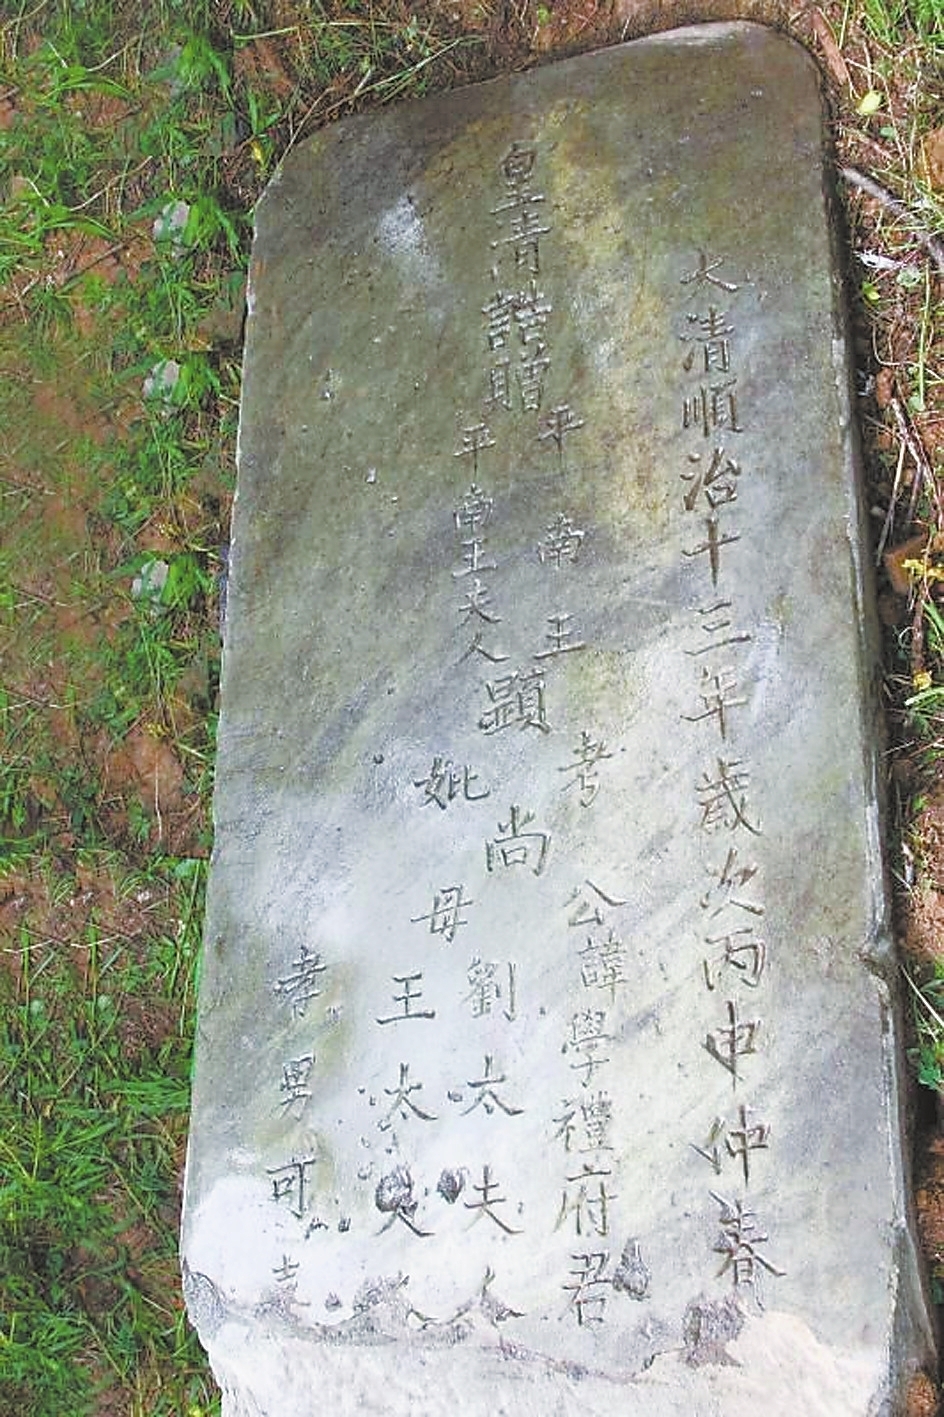 大清順治十三年歲次丙申仲春
皇清誥贈
平南王
平南王夫人
顯
考
妣
尚
公諱學禮府君
母
劉太夫人
王太夫人
孝男可